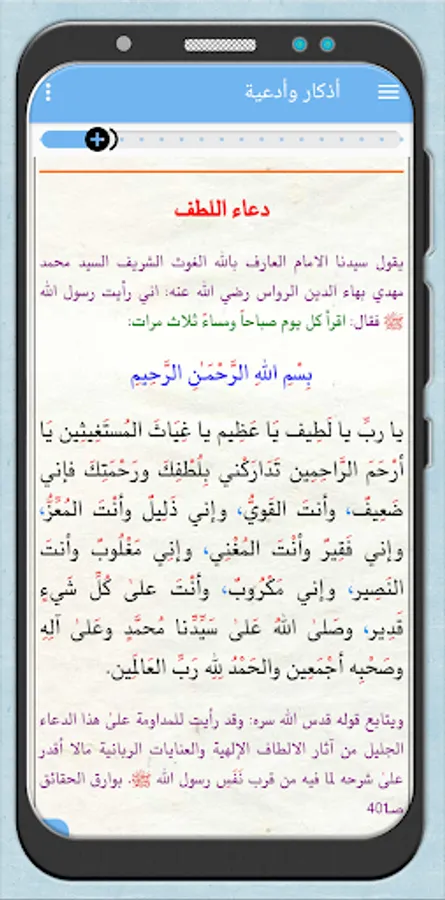 أذكار وأدعية
دعاء اللطف
يقول سيدنا الامام العارف بالله الغوث الشريف السيد محمد
مهدي بهاء الدين الرواس رضي الله عنه: اني رأيت رسول الله
ﷺ فقال: اقرأ كل يوم صباحاً ومساءً ثلاث مرات:
بِسْمِ اللهِ الرَّحْمَـٰنِ الرَّحِيمِ
يا ربِّ يا لَطِيف يَا عَظِيم يا غِيَاثَ المُستَغِيثِين يَا
أرْحَمَ الرَّاحِمِين تَدَارَكْني بِلُطْفِكَ ورَحْمَتِكَ فإني
ضَعِيفٌ، وأنتَ القَويُّ، وإني ذَلِيلٌ وأنْتَ المُعَزُّ،
وإني فَقِيرٌ وأنْتَ المُغْنِي، وإنِي مَغْلُوبٌ وأنتَ
النَصِير، وإني مَكْرُوبٌ، وأنْتَ علىٰ كُلِّ شَيءٍ
قَدِير، وصَلىٰ اللهُ عَلىٰ سَيِّدِّنا مُحمَّدٍ وعَلىٰ آلِهِ
وصَحْبِه أجْمَعِين والحَمْدُ لِلهِ رَبِّ العَالَمِين.
ويتابع قوله قدس الله سره: وقد رأيت للمداومة علىٰ هذا الدعاء
الجليل من آثار الالطاف الإلهية والعنايات الربانية مالا أقدر
علىٰ شرحه لما فيه من قرب نَفَسِ رسول الله ﷺ. بوارق الحقائق
صـ401